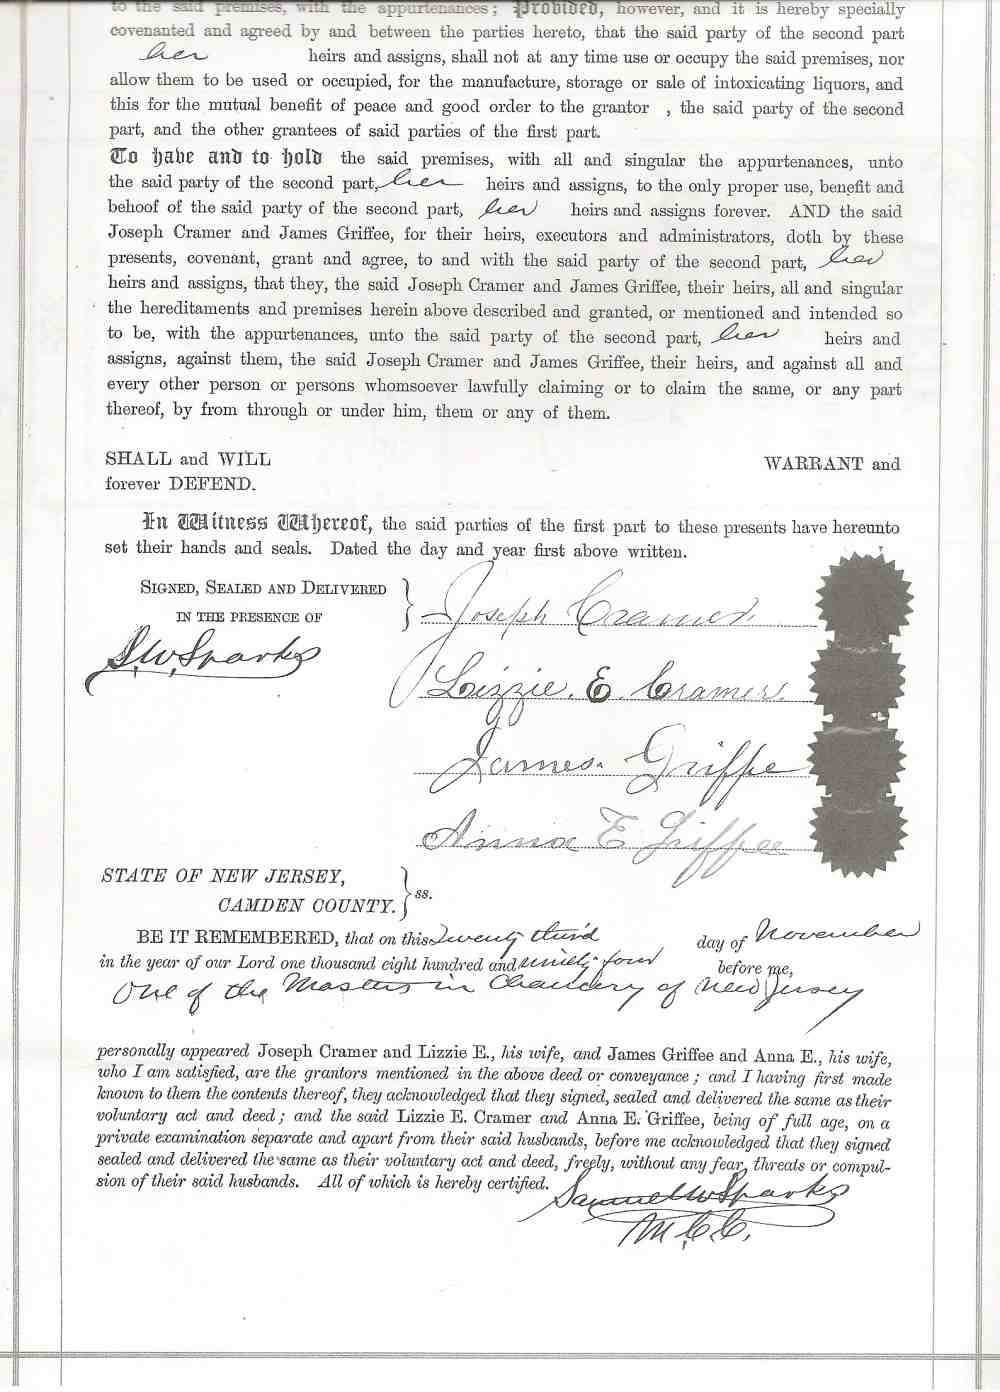 to the said premises, with the appurtenances; Provided, however, and it is hereby specially
covenanted and agreed by and between the parties hereto, that the said party of the second part
her heirs and assigns, shall not at any time use or occupy the said premises, nor
allow them to be used or occupied, for the manufacture, storage or sale of intoxicating liquors, and
this for the mutual benefit of peace and good order to the grantor , the said party of the second
part, and the other grantees of said parties of the first part.
To have and to hold the said premises, with all and singular the appurtenances, unto
the said party of the second part, her heirs and assigns, to the only proper use, benefit and
behoof of the said party of the second part, her heirs and assigns forever. AND the said
Joseph Cramer and James Griffee, for their heirs, executors and administrators, doth by these
presents, covenant, grant and agree, to and with the said party of the second part, her
heirs and assigns, that they, the said Joseph Cramer and James Griffee, their heirs, all and singular
the hereditaments and premises herein above described and granted, or mentioned and intended so
to be, with the appurtenances, unto the said party of the second part, her heirs and
assigns, against them, the said Joseph Cramer and James Griffee, their heirs, and against all and
every other person or persons whomsoever lawfully claiming or to claim the same, or any part
thereof, by from through or under him, them or any of them.
SHALL and WILL WARRANT and
forever DEFEND.
In Witness Whereof, the said parties of the first part to these presents have hereunto
set their hands and seals. Dated the day and year first above written.
SIGNED, SEALED AND DELIVERED
IN THE PRESENCE OF
Joseph Cramer.
S.W. Sparks
Lizzie. E. Cramer.
James. Griffee
Anna E Griffee
STATE OF NEW JERSEY,
CAMDEN COUNTY. ss.
BE IT REMEMBERED, that on this Twenty third day of November
in the year of our Lord one thousand eight hundred and ninety four before me,
One of the Masters in Chancery of New Jersey
personally appeared Joseph Cramer and Lizzie E., his wife, and James Griffee and Anna E., his wife,
who I am satisfied, are the grantors mentioned in the above deed or conveyance; and I having first made
known to them the contents thereof, they acknowledged that they signed, sealed and delivered the same as their
voluntary act and deed; and the said Lizzie E. Cramer and Anna E. Griffee, being of full age, on a
private examination separate and apart from their said husbands, before me acknowledged that they signed
sealed and delivered the same as their voluntary act and deed, freely, without any fear, threats or compul-
sion of their said husbands. All of which is hereby certified.
Samuel W Sparks
M.C.C.